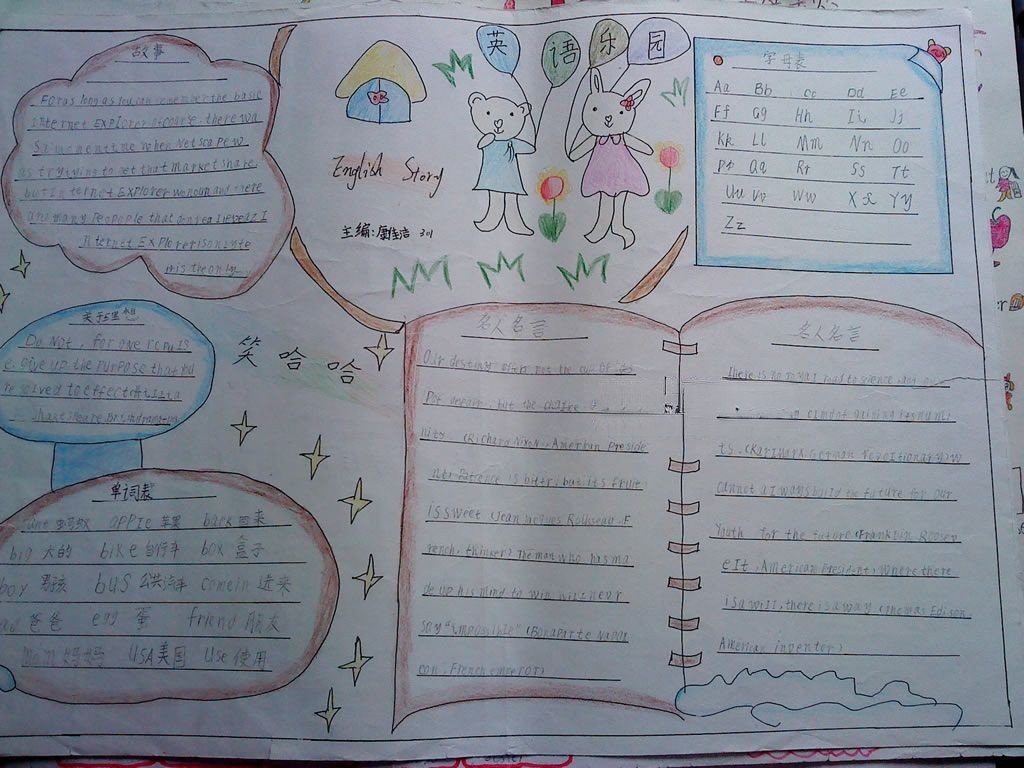 故事
For as long as you can remember the basic
Internet Explorer ofcourse, there wa
Samementtme when Netscapew
as trying to get that market share.
but Internet Explorer wenoumand there
are many Peopople that donrealievezI
nternet Explorerisonlyte
rris theonly
英语乐园
English Story
主编: 301
字母表
Aa Bb Cc Dd Ee
Ff Gg Hh Ii Jj
Kk Ll Mm Nn Oo
Pp Qq Rr Ss Tt
Uu Vv Ww Xx Yy
Zz
关于理想
Do Not, for one repuls
e, give up the purpose that you
resolved to effect
笑哈哈
单词表
ant 蚂蚁 apple 苹果 back 回来
big 大的 bike 自行车 box 盒子
boy 男孩 bus 公共汽车 comein 进来
爸爸 egg 蛋 friend 朋友
Mom 妈妈 USA美国 Use 使用
名人名言
Our destiny offers not the cup of des
pair, but the chalice
nity (Richard Nixon, American Preside
nt) Patience is bitter, but its fruit
is sweet (Jean Jacques Rousseau, F
rench, thinker) The man who has ma
de up his mind to win will never
say "impossible" (Bonaparte Napol
eon, French emperor)
名人名言
There is no royal road to science, and only
ts. (Karl Marx, German revolutionary) W
e cannot always build the future for our
Youth for the future (Franklin Roosev
elt, American President) Where there
is a will, there is a way. (Thomas Edison,
American inventor)